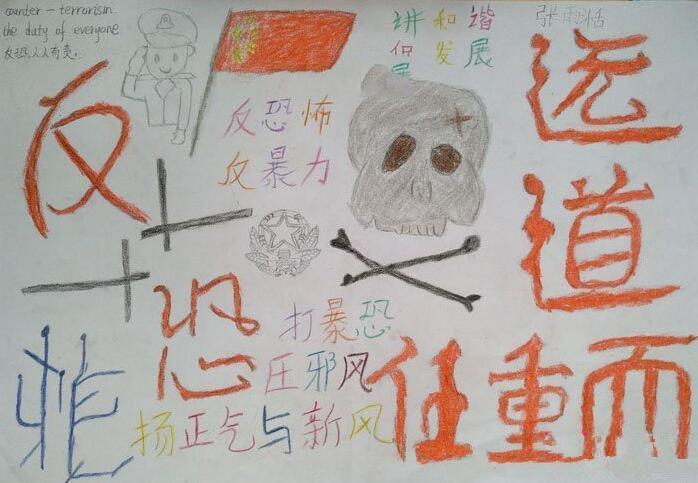 counter - terrorism
the duty of everyone
反恐人人有责.
讲和谐
发展
张雨恬
反恐
反恐怖
反暴力
打暴恐
压邪风
扬正气与新风
任重而
道
远